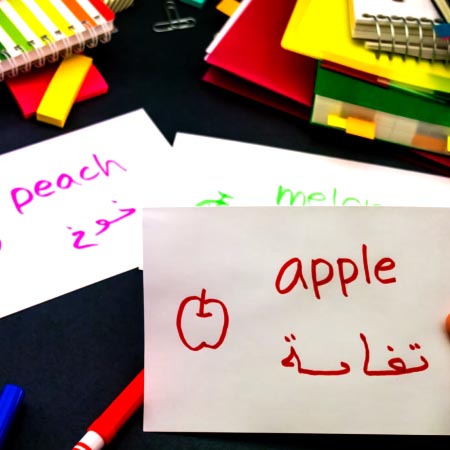 peach
خوخ
melon
apple
تفاحة